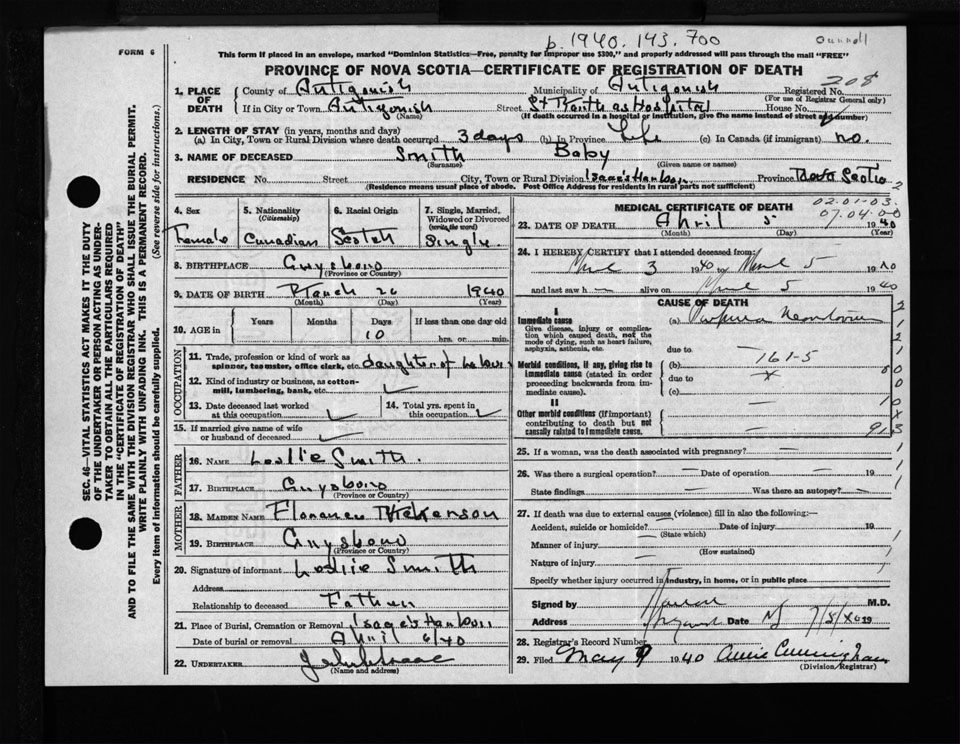 p. 1940. 143. 700
FORM 6
This form if placed in an envelope, marked "Dominion Statistics—Free, penalty for improper use $300," and properly addressed will pass through the mail "FREE"
PROVINCE OF NOVA SCOTIA—CERTIFICATE OF REGISTRATION OF DEATH
208
1. PLACE OF DEATH
County of Antigonish Municipality of Antigonish Registered No.
(For use of Registrar General only)
If in City or Town Antigonish Street St Hospital House No.
(Name) (If death occurred in a hospital or institution, give the name instead of street and number)
2. LENGTH OF STAY (in years, months and days)
(a) In City, Town or Rural Division where death occurred 3 days (b) In Province Life (c) In Canada (if immigrant) no.
3. NAME OF DECEASED Smith Baby
(Surname) (Given name or names)
RESIDENCE No. Street City, Town or Rural Division Isaac's Harbour Province Nova Scotia 2
(Residence means usual place of abode. Post Office Address for residents in rural parts not sufficient)
SEC. 46—VITAL STATISTICS ACT MAKES IT THE DUTY
OF THE UNDERTAKER OR PERSON ACTING AS UNDER-
TAKER TO OBTAIN ALL THE PARTICULARS REQUIRED
IN THE "CERTIFICATE OF REGISTRATION OF DEATH"
AND TO FILE THE SAME WITH THE DIVISION REGISTRAR WHO SHALL ISSUE THE BURIAL PERMIT.
WRITE PLAINLY WITH UNFADING INK. THIS IS A PERMANENT RECORD.
Every item of information should be carefully supplied. (See reverse side for instructions.)
4. Sex 5. Nationality (Citizenship) 6. Racial Origin 7. Single, Married, Widowed or Divorced (write the word)
Female Canadian Scotch Single
8. BIRTHPLACE Guysboro
(Province or Country)
9. DATE OF BIRTH March 26 1940
(Month) (Day) (Year)
10. AGE in Years Months Days If less than one day old
10 hrs. or min.
OCCUPATION
11. Trade, profession or kind of work as spinner, teamster, office clerk, etc. daughter of
12. Kind of industry or business, as cotton-mill, lumbering, bank, etc.
13. Date deceased last worked at this occupation 14. Total yrs. spent in this occupation
15. If married give name of wife or husband of deceased
FATHER
16. NAME Leslie Smith.
17. BIRTHPLACE Guysboro
(Province or Country)
MOTHER
18. MAIDEN NAME Florence
19. BIRTHPLACE Guysboro
(Province or Country)
20. Signature of informant Leslie Smith
Address
Relationship to deceased Father
21. Place of Burial, Cremation or Removal Isaac's Harbour
Date of burial or removal April 6/40
22. UNDERTAKER
(Name and address)
MEDICAL CERTIFICATE OF DEATH 02.01-03.
07.04.00
23. DATE OF DEATH April 5 1940
(Month) (Day) (Year)
24. I HEREBY CERTIFY that I attended deceased from:
3 1940 to 5 1940
and last saw h alive on 5 1940
CAUSE OF DEATH
I
Immediate cause (a) Purpura
Give disease, injury or complication which caused death, not the mode of dying, such as heart failure, asphyxia, asthenia, etc.
due to
161-5
Morbid conditions, if any, giving rise to immediate cause (stated in order proceeding backwards from immediate cause). (b)
due to
(c)
II
Other morbid conditions (if important) contributing to death but not causally related to immediate cause.
25. If a woman, was the death associated with pregnancy?
26. Was there a surgical operation? Date of operation 19
State findings Was there an autopsy?
27. If death was due to external causes (violence) fill in also the following:—
Accident, suicide or homicide? Date of injury 19
(State which)
Manner of injury
(How sustained)
Nature of injury
Specify whether injury occurred in industry, in home, or in public place
Signed by M.D.
Address Date 19
28. Registrar's Record Number
29. Filed May 9 1940 Annie Cunningham
(Division Registrar)